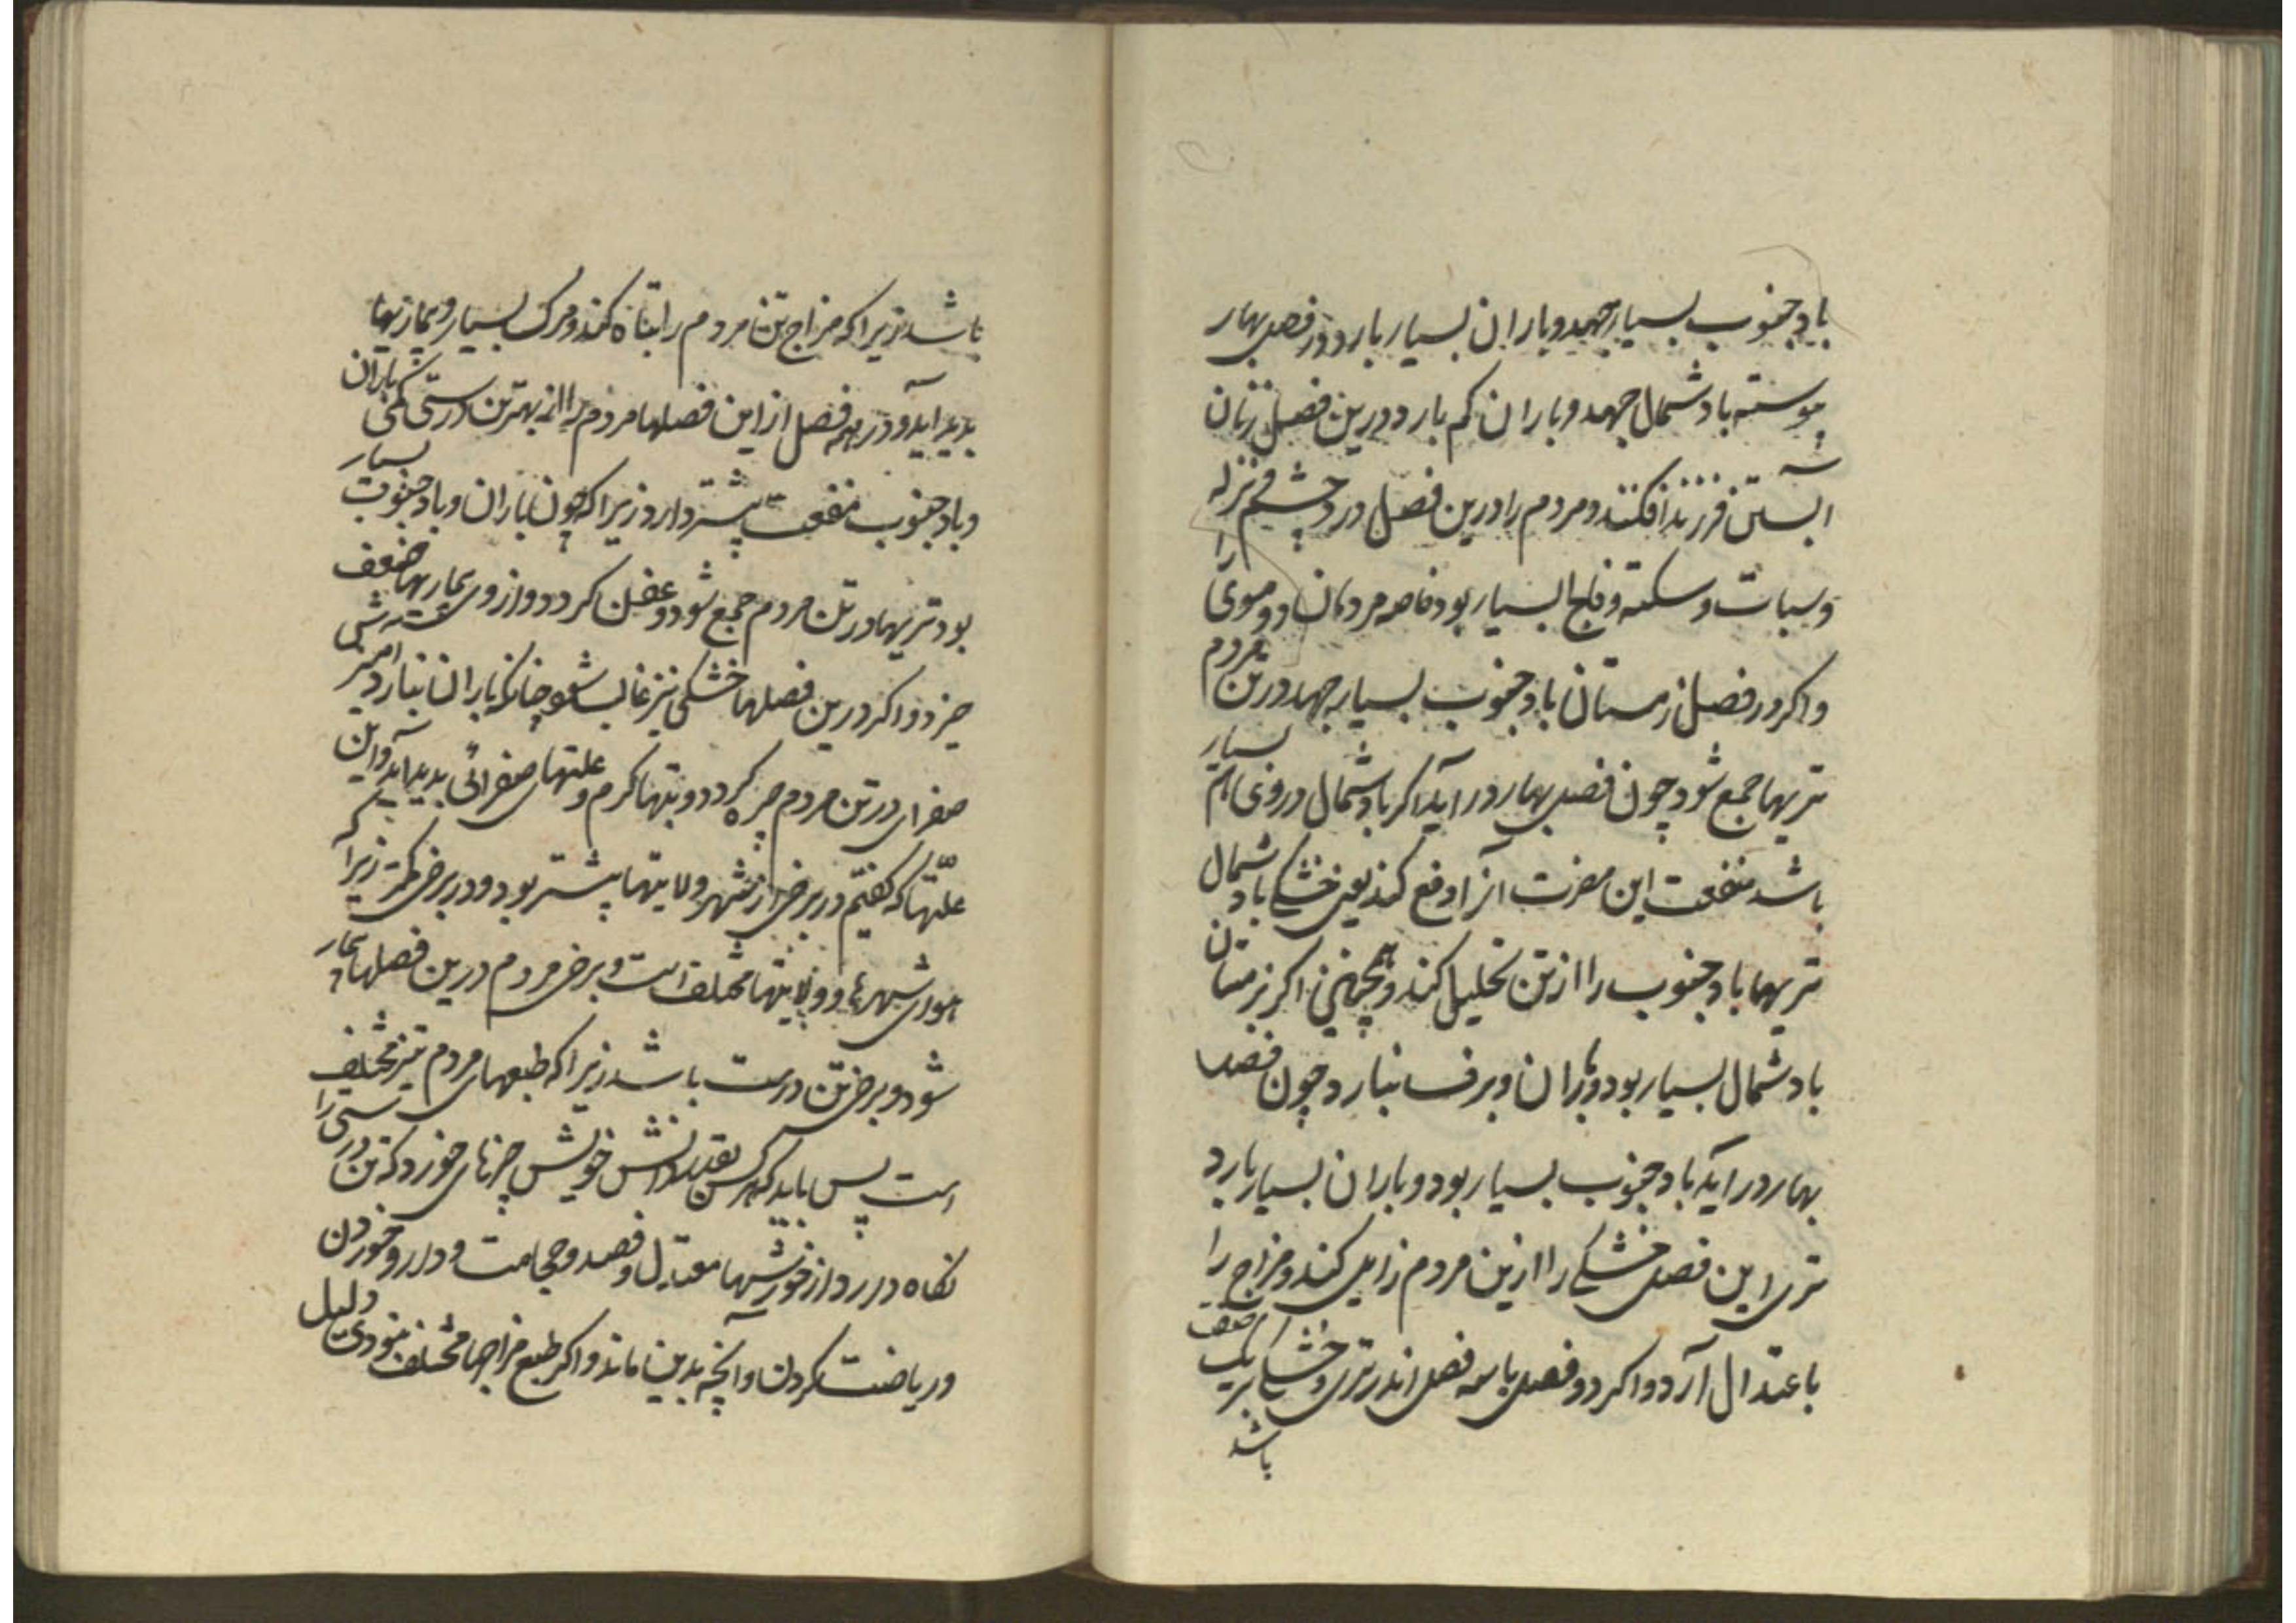 باد جنوب بسیار جهد و باران بسیار بارد و در فصل بهار
پیوسته باد شمال جهد و باران کم بارد درین فصل زنان
آبستن فرزند افکنند و مردم را درین فصل درد چشم و نزله
و سبات و سکته و فالج بسیار بود خاصه مردمان دو موی را
و اگر در فصل زمستان باد جنوب بسیار جهد در تن مردم
تریها جمع شود چون فصل بهار در آید اگر باد شمال در وی هم بسیار
باشد منفعت این مضرت آنرا دفع کند یعنی خشکی باد شمال
تریها باد جنوب را از تن تحلیل کند و همچنین اگر زمستان
باد شمال بسیار بود و باران و برف نبارد چون فصل
بهار در آید باد جنوب بسیار بود و باران بسیار بارد
تری این فصل خشکی را ازین مردم زایل کند و مزاج را
باعتدال آرد و اگر دو فصل یا سه فصل اندر تری و خشکی بریک صفت
باشد
باشد زیرا که مزاج تن مردم را تباه کند و مرک بسیار و بیماریها
پدید آید و در همه فصل از این فصلها مردم را از بهر تن درستی کمی باران
و باد جنوب منفعت بیشتر دارد زیرا که چون باران و باد جنوب بسیار
بود تریها در تن مردم جمع شود و عفن کردد و از وی بیماریها ضعف
خیزد و اگر درین فصلها خشکی نیز غالب شود چنانکه باران نبارد
صفرای در تن مردم چیره کردد و تبها کرم و علتهای صفرائی پدید آید و این
علتها که کفتیم در برخی از شهر و ولایتها بیشتر بود و در برخی کمتر زیرا که
هوای شهرها و ولایتها مختلف است و برخی مردم درین فصلها بیمار
شود و برخی تن درست باشد زیرا که طبعهای مردم نیز مختلف
است پس باید که هر کس بقدر دانش خویش چیزهای خورد که تن درستی را
نکاه دارد از خورشها معتدل و فصد و حجامت و دارو خوردن
و ریاضت کردن و آنچه بدین ماند و اگر طبع مزاجها مختلف نبودی دلیل